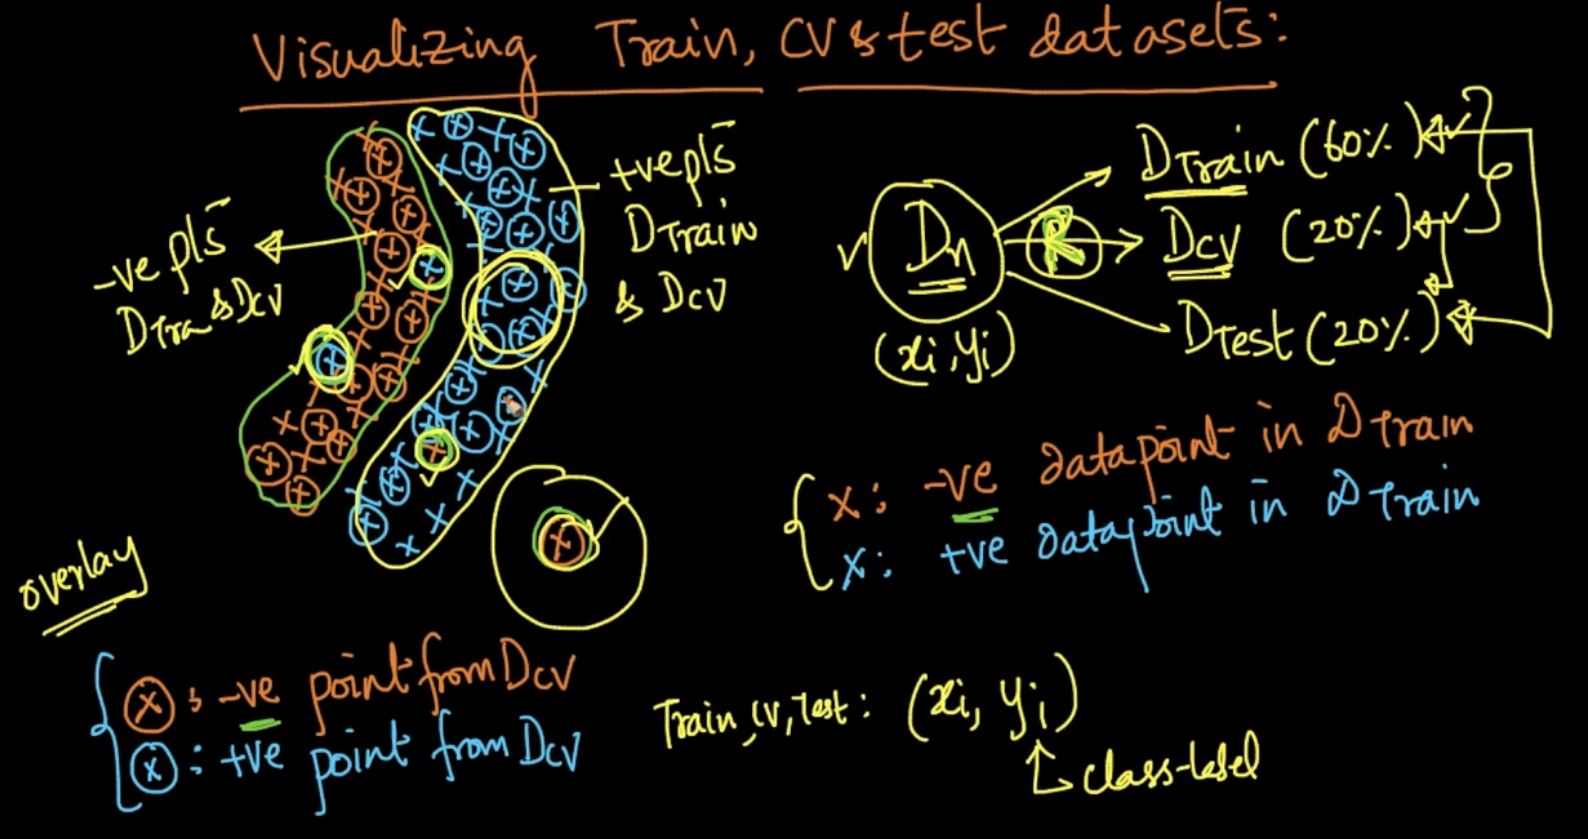 Visualizing Train, CV & test datasets:
+ve pts
DTrain
& Dcv
-ve pts
DTra & Dcv
Dn
(xi, yi)
R
DTrain (60%)
Dcv (20%)
DTest (20%)
x: -ve datapoint in DTrain
x: +ve datapoint in DTrain
overlay
ⓧ: -ve point from Dcv
ⓧ: +ve point from Dcv
Train, CV, Test: (xi, yi)
class-label